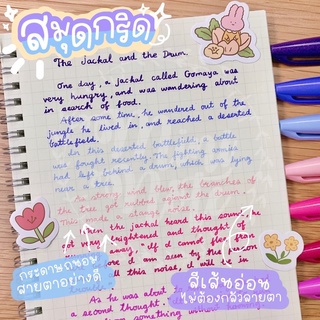 สมุดกริด
The Jackal and the Drum.
One day, a jackal called Gomaya was
very hungry, and was wandering about
in search of food.
After some time, he wandered out of the
jungle he lived in, and reached a deserted
battlefield.
In this deserted battlefield, a battle
was fought recently. The fighting armies
had left behind a drum, which was lying
near a tree.
As strong wind blew, the branches of
the tree got rubbed against the drum.
This made a strange noise.
When the jackal heard this sound, he
got very frightened and thought of
away. "If I cannot flee from
I am seen by the person
all this noise, I will be in
As he was about to
a second thought.
something without
กระดาษถนอม
สายตาอย่างดี
สีเส้นอ่อน
ไม่ต้องกลัวลายตา